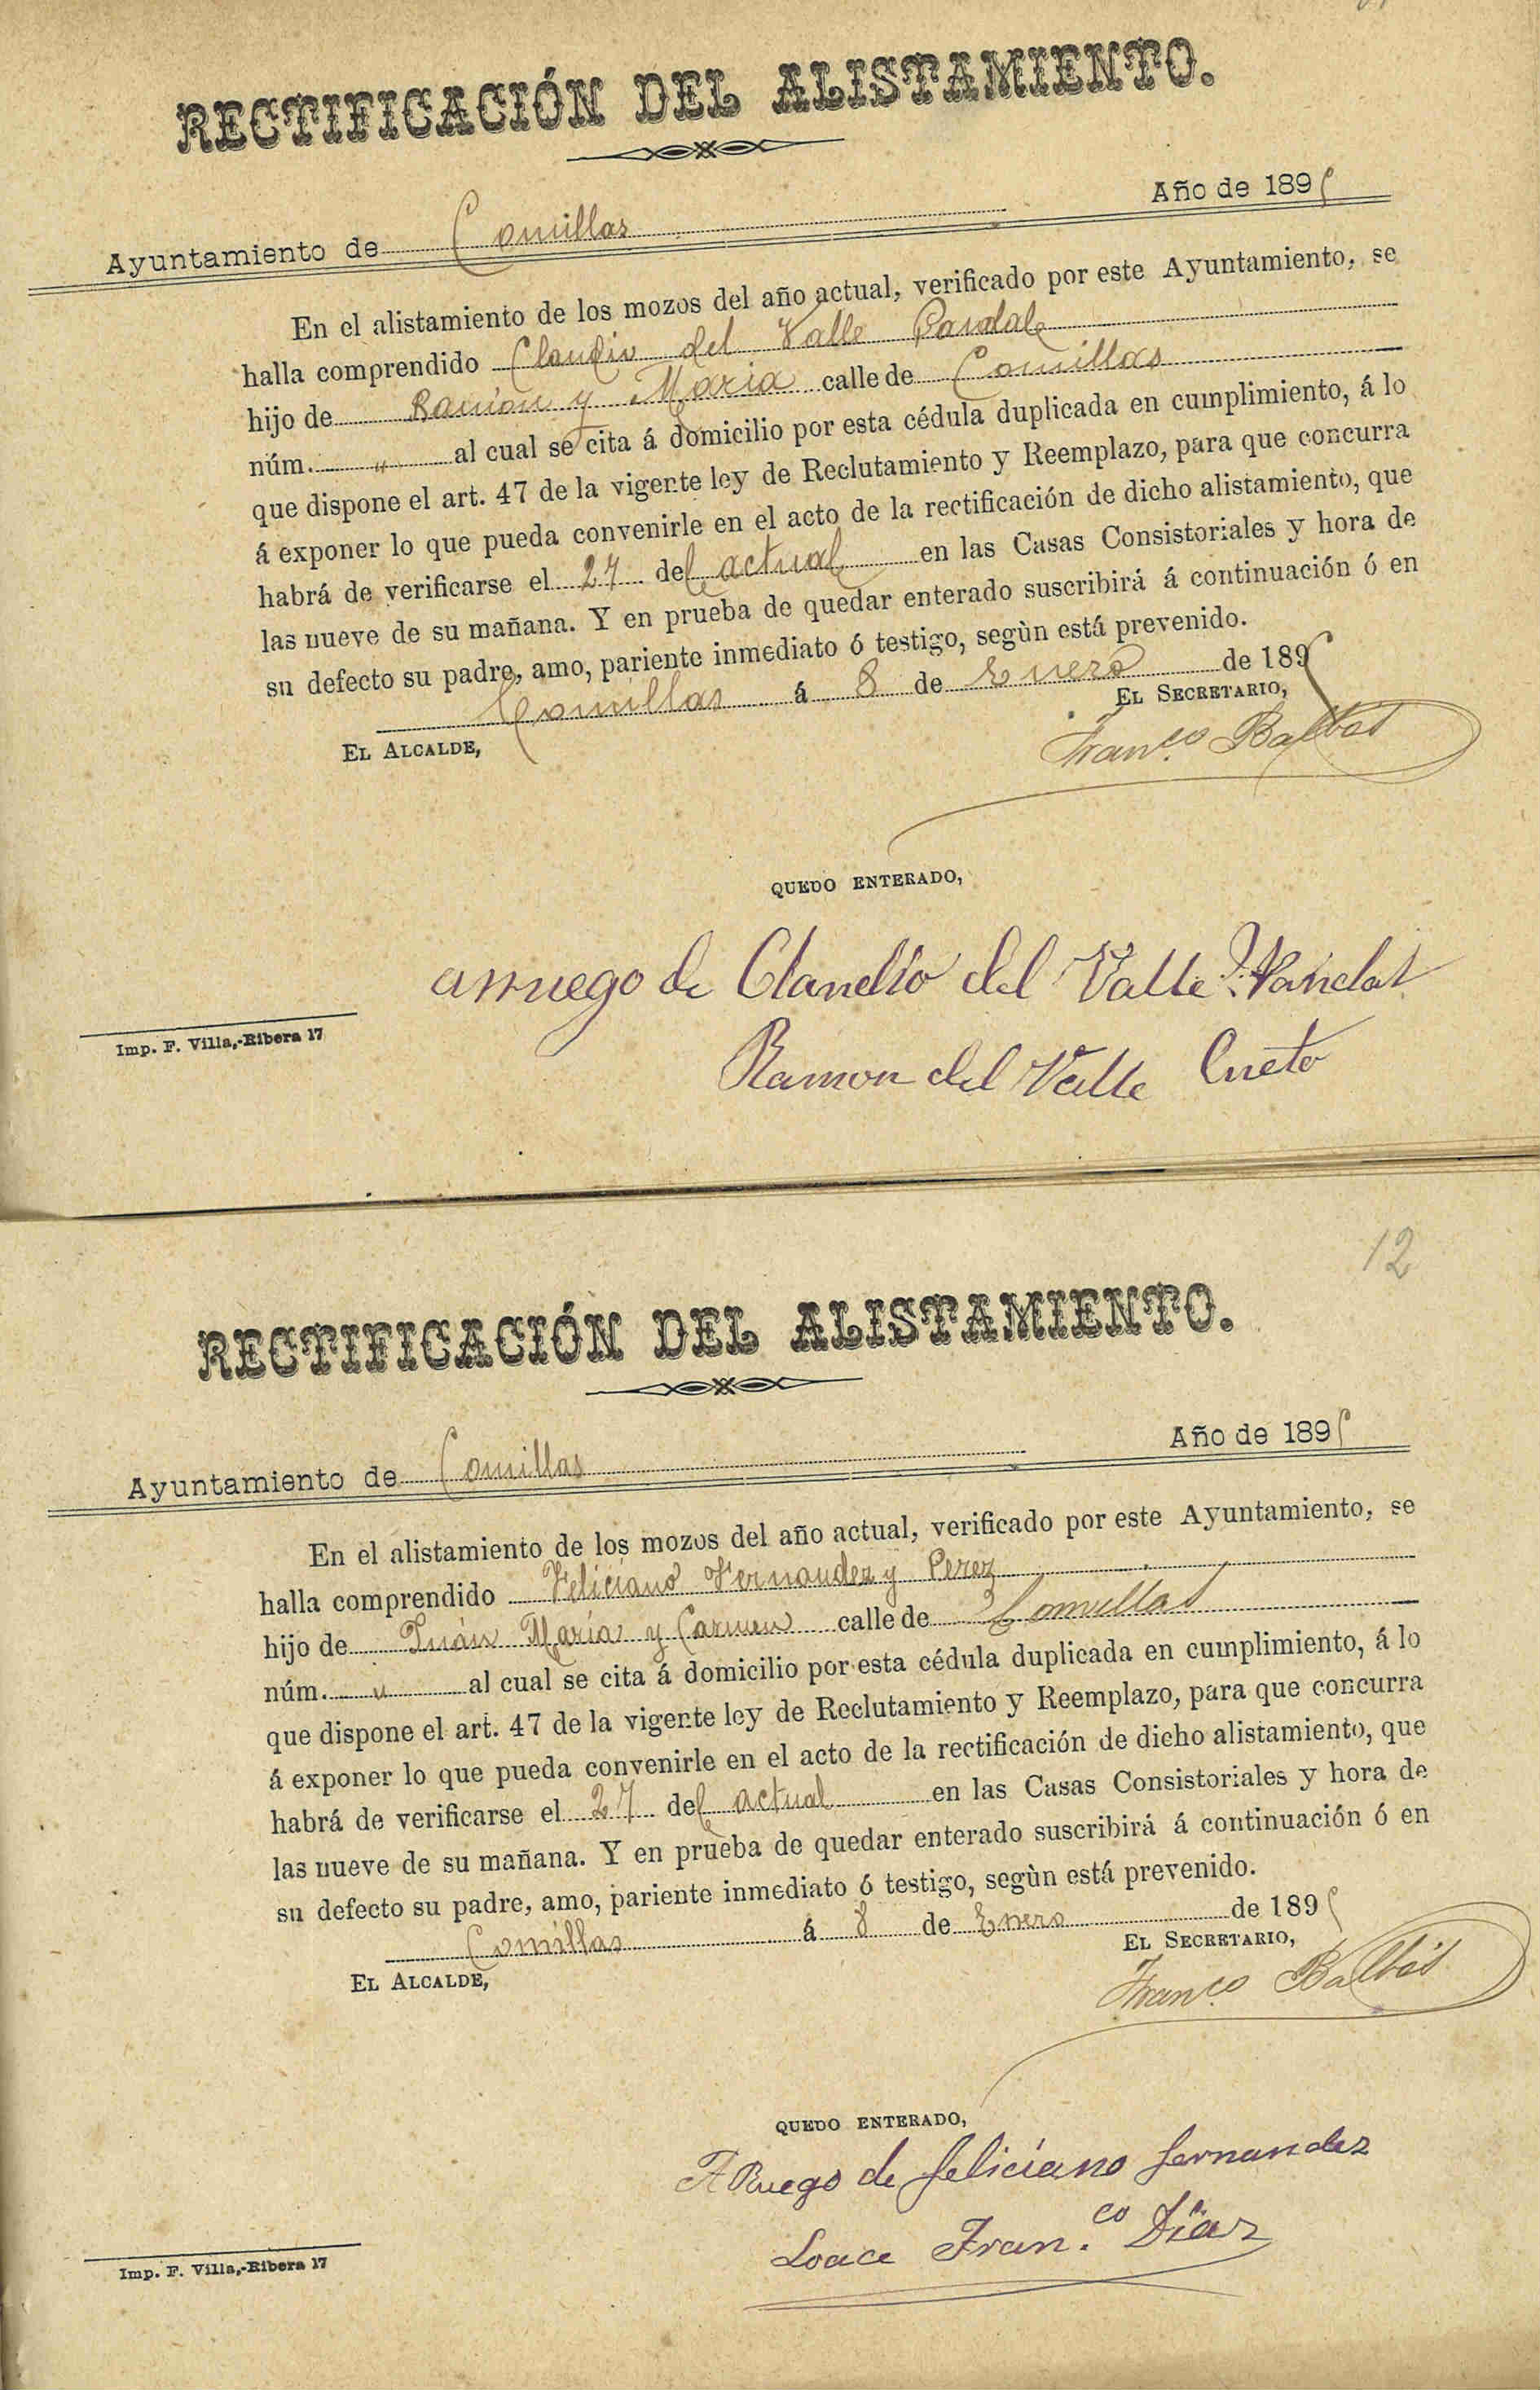 RECTIFICACIÓN DEL ALISTAMIENTO.
Año de 1895
Ayuntamiento de Comillas
En el alistamiento de los mozos del año actual, verificado por este Ayuntamiento, se
halla comprendido Claudio del Valle
hijo de Ramon y Maria calle de Comillas
núm. " al cual se cita á domicilio por esta cédula duplicada en cumplimiento, á lo
que dispone el art. 47 de la vigente ley de Reclutamiento y Reemplazo, para que concurra
á exponer lo que pueda convenirle en el acto de la rectificación de dicho alistamiento, que
habrá de verificarse el 27 del actual en las Casas Consistoriales y hora de
las nueve de su mañana. Y en prueba de quedar enterado suscribirá á continuación ó en
su defecto su padre, amo, pariente inmediato ó testigo, según está prevenido.
Comillas á 8 de Enero de 1895
EL ALCALDE, EL SECRETARIO,
Fran.co Balbás
QUEDO ENTERADO,
arruego de Claudio del Valle
Ramon del Valle Cueto
Imp. F. Villa,-Ribera 17
12
RECTIFICACIÓN DEL ALISTAMIENTO.
Año de 1895
Ayuntamiento de Comillas
En el alistamiento de los mozos del año actual, verificado por este Ayuntamiento, se
halla comprendido Feliciano Fernandez y Perez
hijo de Juan Maria y Carmen calle de Comillas
núm. " al cual se cita á domicilio por esta cédula duplicada en cumplimiento, á lo
que dispone el art. 47 de la vigente ley de Reclutamiento y Reemplazo, para que concurra
á exponer lo que pueda convenirle en el acto de la rectificación de dicho alistamiento, que
habrá de verificarse el 27 del actual en las Casas Consistoriales y hora de
las nueve de su mañana. Y en prueba de quedar enterado suscribirá á continuación ó en
su defecto su padre, amo, pariente inmediato ó testigo, según está prevenido.
Comillas á 8 de Enero de 1895
EL ALCALDE, EL SECRETARIO,
Fran.co Balbás
QUEDO ENTERADO,
A Ruego de feliciano fernandez
Loace Fran.co Diaz
Imp. F. Villa,-Ribera 17